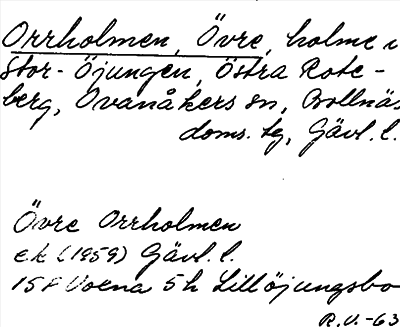 Orrholmen, Övre, holme i
Stor-Öjungen, Östra Rote-
berg, Ovanåkers sn, Bollnäs
doms. tg, Gävl. l.
Övre Orrholmen
ek (1959) Gävl. l.
15F Voxna 5h Lillöjungsbo
R.V.-63